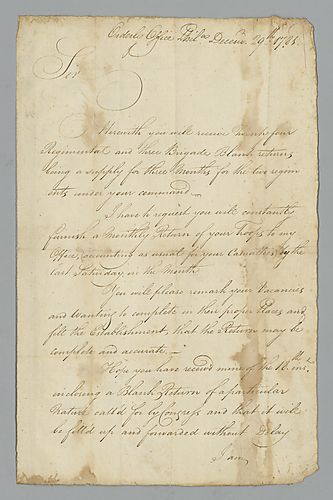 Orderly Office Phila Decemr. 29th 17
Sir
Herewith you will receive twenty four
Regimental and three Brigade Blank returns
being a supply for three Months for the two regim
ents under your command—
I have to request you will constantly
furnish a Monthly Return of your troops to my
Office, accounting as usual for your Casualties, by the
last Saturday in the Month
You will please remark your Vacancies
and Wanting to complete in their proper Places and
fill the Establishment, that the Return may be
complete and accurate.—
Hope you have received mine of the 18th inst.
enclosing a Blank Return of a particular
Nature call'd for by Congress and that it will
be fill'd up and forwarded without Delay
I am